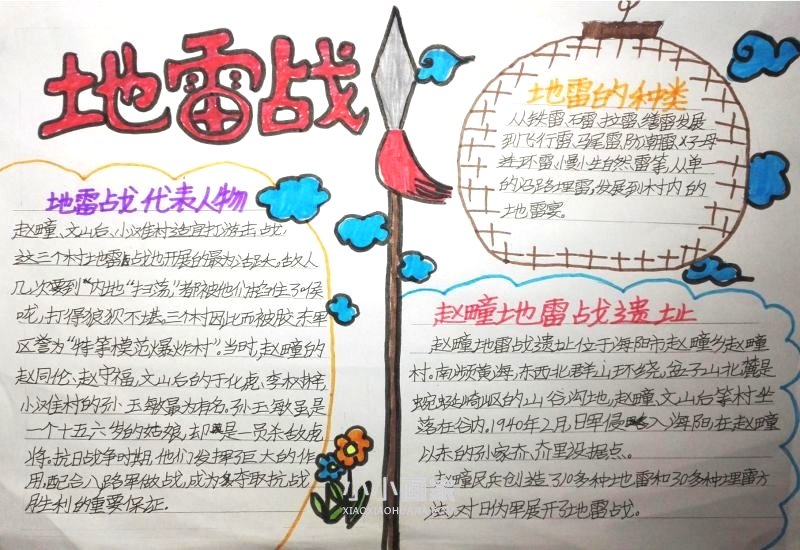 地雷战
地雷战代表人物
赵疃、文山后、小滩村造雷打游击战,
这三个村地雷战地开展的最为活跃,敌人
几次要到“内地”扫荡,”都被他们掐住了喉
咙,打得狼狈不堪。三个村因此而被胶东军
区誉为“特等模范爆炸村”。当时,赵疃的
赵同伦、赵守福,文山后的于化虎、
小滩村的孙玉敏最为有名。孙玉敏虽是
一个十五六岁的姑娘,却是一员杀敌虎
将。抗日战争时期,他们发挥了巨大的作
用,配合八路军做战,成为夺取抗战
胜利的重要保证.
地雷的种类
从铁雷、石雷、拉雷、绊雷发展
到飞行雷、马尾雷、防潮雷、子母
连环雷、慢性自然雷等,从单一
的沿路埋雷,发展到村内的
地雷宴。
赵疃地雷战遗址
赵疃地雷战遗址位于海阳市赵疃乡赵疃
村。南频黄海,东西北群山环绕,盆子山北麓是
蜿蜒崎岖的山谷沟地,赵疃、文山后等村坐
落在谷内。1940年2月,日军侵入海阳,在赵疃
以东的孙家夼、夼里设据点。
赵疃民兵创造了10多种地雷和30多种埋雷方
法,对日伪军展开了地雷战。
小小画家